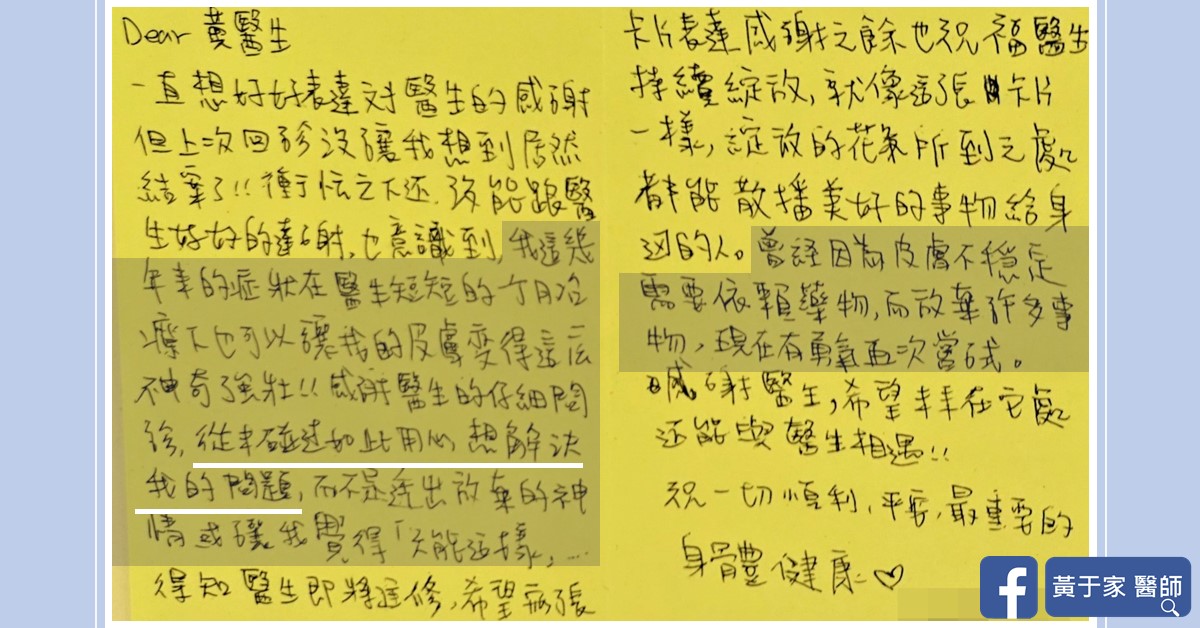 Dear 黃醫生
一直想好好表達對醫生的感謝
但上次回診沒讓我想到居然
結案了!! 衝忙之下还沒能跟醫
生好好的道謝,也意識到,我這幾
年來的症狀在醫生短短的一个月治
療下也可以讓我的皮膚变得這么
神奇強壯!! 感謝醫生的仔細問
診,從未碰過如此用心想解決
我的問題,而不是透出放棄的神
情或讓我覺得「只能這樣,....
得知醫生即將進修,希望張
卡片表達感謝之餘也祝福醫生
持續綻放,就像這張卡片
一樣,綻放的花朵所到之處
都能散播美好的事物給身
边的人。曾经因為皮膚不穩定
需要依賴藥物,而放棄許多事
物,現在有勇氣再次嘗試。
感謝醫生,希望未來在它處
还能與醫生相遇!!
祝一切順利,平安,最重要的
身體健康~♡
黃于家 醫師